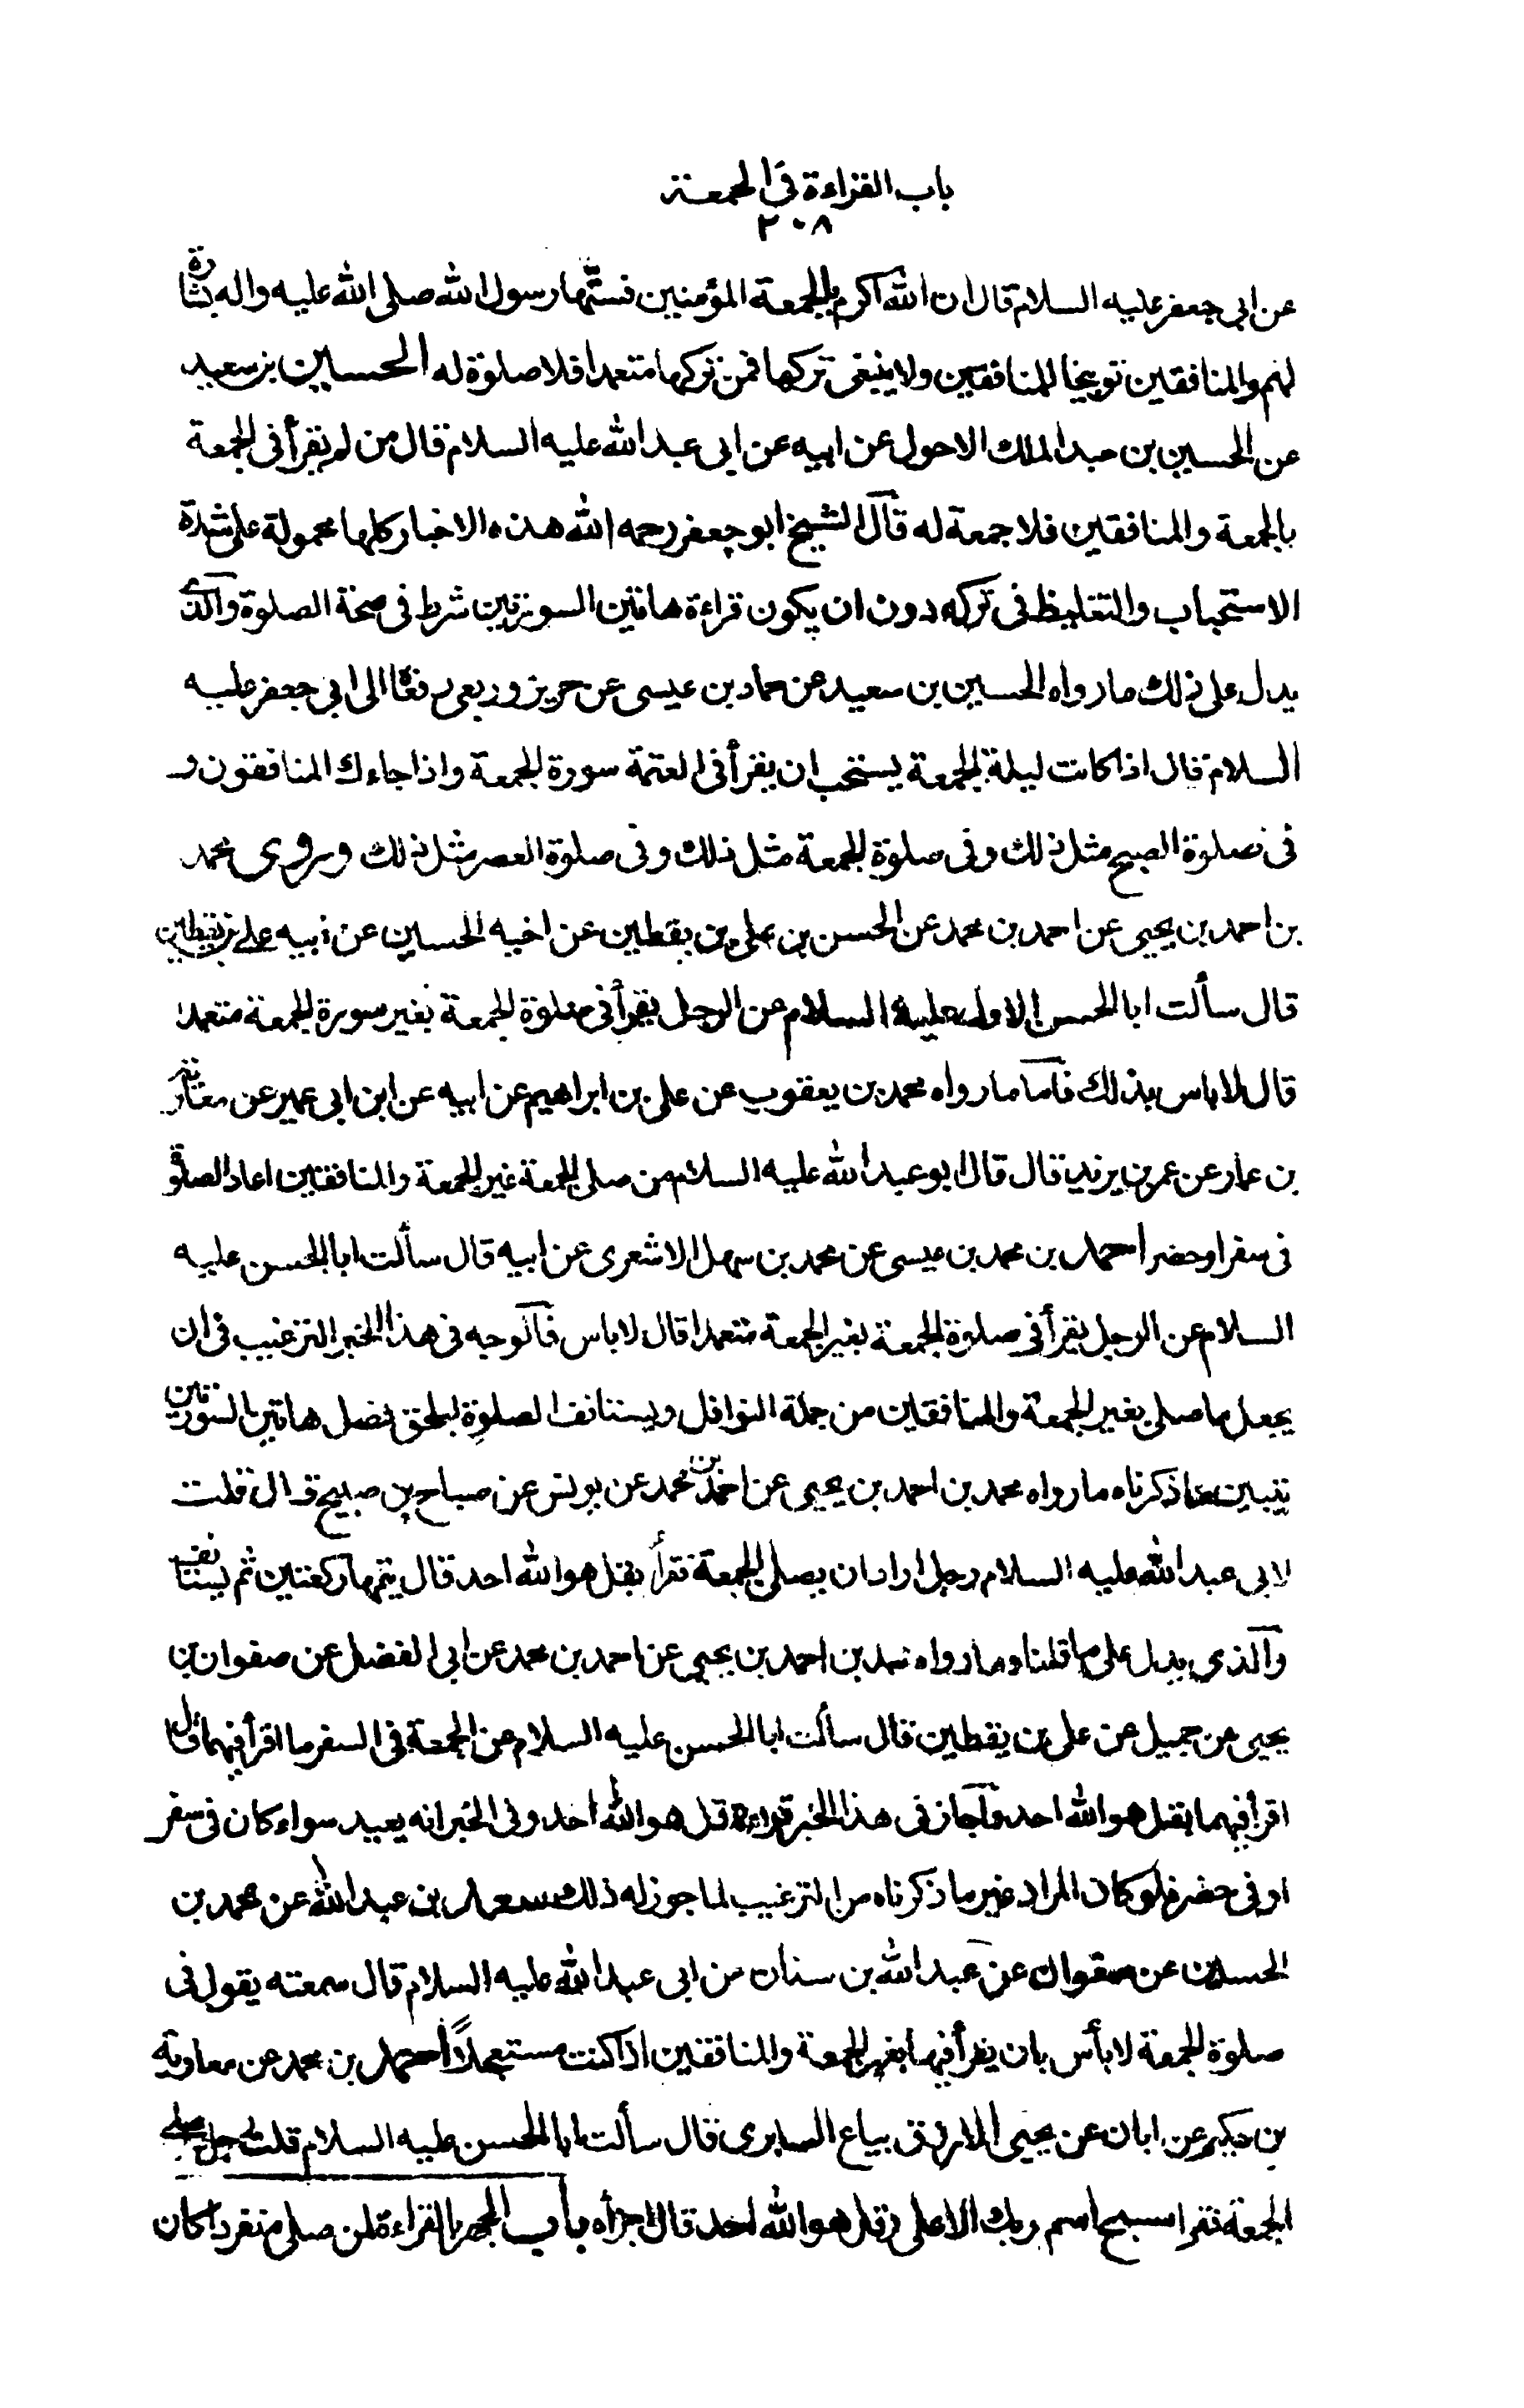 باب القراءة في الجمعة
٢٠٨
عن ابى جعفر عليه السلام قال ان الله اكرم بالجمعة المؤمنين فسنّها رسول الله صلى الله عليه واله بشارة
لهم والمنافقين توبيخا للمنافقين ولا ينبغى تركها فمن تركها متعمدا فلا صلوة له الحسين بن سعيد
عن الحسين بن عبد الملك الاحول عن ابيه عن ابى عبد الله عليه السلام قال من لم يقرأ فى الجمعة
بالجمعة والمنافقين فلا جمعة له قال الشيخ ابو جعفر رحمه الله هذه الاخبار كلها محمولة على شدة
الاستحباب والتغليظ فى تركه دون ان يكون قراءة هاتين السورتين شرط فى صحة الصلوة والذى
يدل على ذلك ما رواه الحسين بن سعيد عن حماد بن عيسى عن حريز وربعى رفعا الى ابى جعفر عليه
السلام قال اذا كانت ليلة الجمعة يستحب ان يقرأ فى العتمة سورة الجمعة واذا جاءك المنافقون و
فى صلوة الصبح مثل ذلك وفى صلوة الجمعة مثل ذلك وفى صلوة العصر مثل ذلك وروى محمد
بن احمد بن يحيى عن احمد بن محمد عن الحسن بن على بن يقطين عن اخيه الحسين عن ابيه على بن يقطين
قال سألت ابا الحسن الاول عليه السلام عن الرجل يقرأ فى صلوة الجمعة بغير سورة الجمعة متعمدا
قال لا باس بذلك فاما ما رواه محمد بن يعقوب عن على بن ابراهيم عن ابيه عن ابن ابى عمير عن معاوية
بن عمار عن عمر بن يزيد قال قال ابو عبد الله عليه السلام من صلى الجمعة بغير الجمعة والمنافقين اعاد الصلوة
فى سفر او حضر احمد بن محمد بن عيسى عن محمد بن سهل الاشعرى عن ابيه قال سألت ابا الحسن عليه
السلام عن الرجل يقرأ فى صلوة الجمعة بغير الجمعة متعمدا قال لا باس فالوجه فى هذا الخبر الترغيب فى ان
يجعل ما صلى بغير الجمعة والمنافقين من جملة النوافل ويستانف الصلوة ليلحق فضل هاتين السورتين
يبين ما ذكرناه ما رواه محمد بن احمد بن يحيى عن احمد بن محمد عن يونس عن صباح بن صبيح قال قلت
لابى عبد الله عليه السلام رجل اراد ان يصلى الجمعة فقرأ بقل هو الله احد قال يتمها ركعتين ثم يستانف
والذى يدل على ما قلناه ما رواه محمد بن احمد بن يحيى عن احمد بن محمد عن ابى الفضل عن صفوان بن
يحيى عن جميل عن على بن يقطين قال سألت ابا الحسن عليه السلام عن الجمعة فى السفر ما اقرأ فيهما قال
اقرأ فيهما بقل هو الله احد فاجاز فى هذا الخبر قراءة قل هو الله احد وفى الخبر انه يعيد سواء كان فى سفر
او فى حضر فلو كان المراد غير ما ذكرناه من الترغيب لما جوز له ذلك سعد بن عبد الله عن محمد بن
الحسين عن صفوان عن عبد الله بن سنان عن ابى عبد الله عليه السلام قال سمعته يقول فى
صلوة الجمعة لا بأس بان يقرأ فيها بغير الجمعة والمنافقين اذا كنت مستعجلاً احمد بن محمد عن معاوية
بن حكيم عن ابان عن يحيى الازرق بياع السابرى قال سألت ابا الحسن عليه السلام قلت رجل صلى
الجمعة فقرا سبح اسم ربك الاعلى وقل هو الله احد قال اجزأه باب الجهر بالقراءة لمن صلى منفردا كان